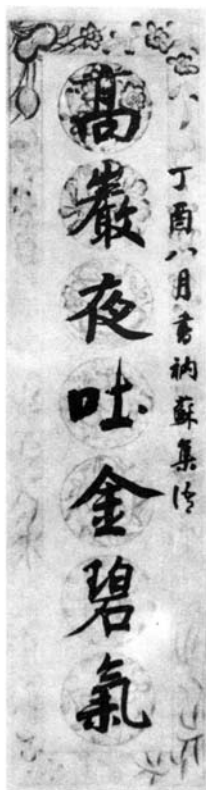 丁酉八月書衲蘇集
髙巖夜吐金碧氣